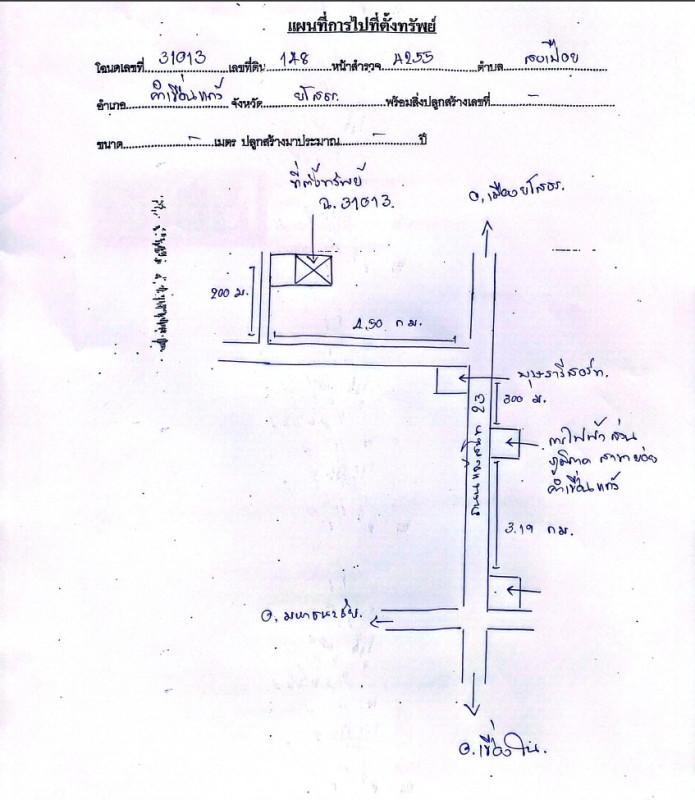 แผนที่การไปที่ตั้งทรัพย์
โฉนดเลขที่ 31013 เลขที่ดิน 148 หน้าสำรวจ 4255 ตำบล สงเปือย
อำเภอ คำเขื่อนแก้ว จังหวัด ยโสธร พร้อมสิ่งปลูกสร้างเลขที่ -
ขนาด - เมตร ปลูกสร้างมาประมาณ - ปี
ที่ตั้งทรัพย์
ฉ.31013.
อ.เมืองยโสธร.
200 ม.
4.50 กม.
บุษรารีสอร์ท.
300 ม.
ถนนแจ้งสนิท 23
การไฟฟ้าส่วน
ภูมิภาค สาขาย่อย
คำเขื่อนแก้ว
3.19 กม.
อ.มหาชนะชัย.
อ.เขื่องใน.